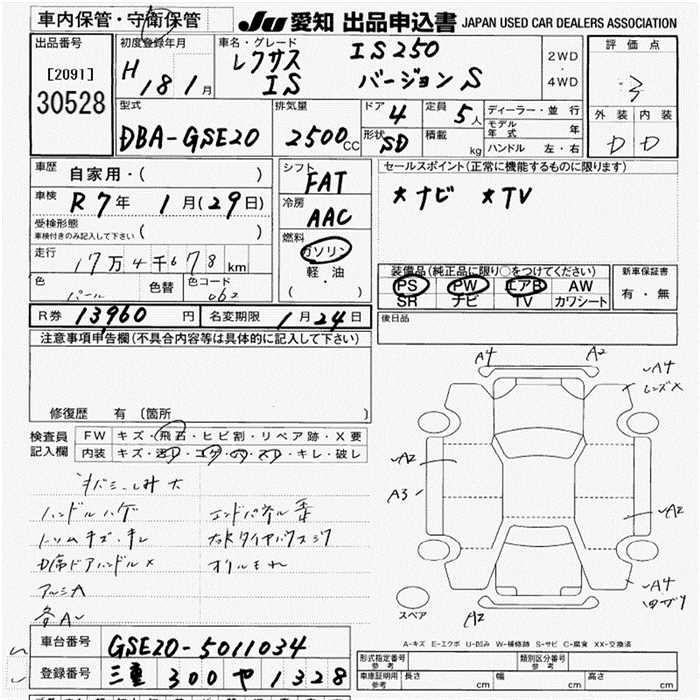 車内保管・守衛保管
JU 愛知 出品申込書 JAPAN USED CAR DEALERS ASSOCIATION
出品番号
[2091]
30528
初度登録年月
H 18 1月
車名・グレード
レクサス IS250
IS バージョンS
2WD
・
4WD
評価点
3
外装 内装
D D
型式
DBA-GSE20
排気量
2500cc
ドア 4
形状 SD
定員 5人
積載 kg
ディーラー・並行
モデル年式 年
ハンドル 左・右
車歴
自家用・( )
車検
R7年 1月(29日)
受検形態
車検付きのみ記入して下さい ( )
走行
17万4千678km
色
パール
色替
色コード
062
シフト
FAT
冷房
AAC
燃料
ガソリン
軽・油
( ・ )
セールスポイント(正常に機能するものに限ります)
*ナビ *TV
装備品(純正品に限り○をつけてください)
PS PW エアB AW
SR ナビ TV カワシート
新車保証書
有・無
後日品
R券 13960円 名変期限 1月24日
注意事項申告欄(不具合内容等は具体的に記入して下さい)
修復歴 有 〔箇所 〕
検査員
記入欄
FW キズ・飛石・ヒビ割・リペア跡・X要
内装 キズ・汚・コゲ・穴・スレ・キレ・破レ
ハンドルハゲ
トリムキズ・キレ
D席ドアハンドル×
アルミA
各A
オイルモレ
A4 A2
A4
レンズX
A2
A3
A2
A4
A2
スペア
A-キズ E-エクボ U-凹み W-補修跡 S-サビ C-腐食 XX-交換済
車台番号 GSE20-5011034
登録番号 三重 300 や 1328
形式指定番号
参考
類別区分番号
参考
車庫証明用
参考
長さ cm 幅 cm 高さ cm